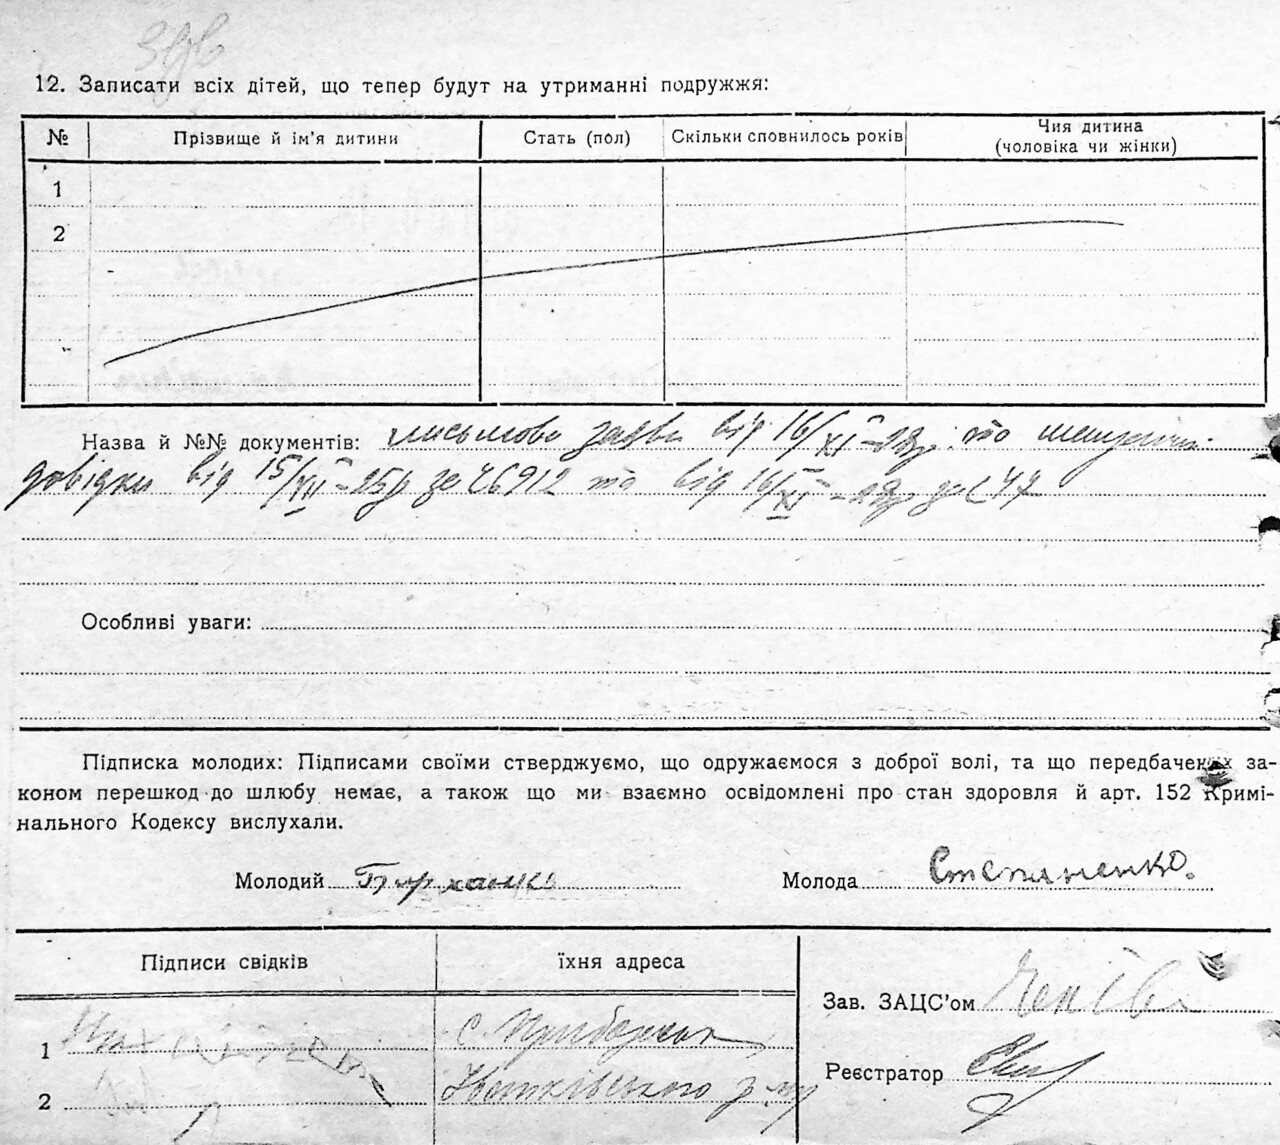 12. Записати всіх дітей, що тепер будут на утриманні подружжя:
№ Прізвище й ім'я дитини Стать (пол) Скільки сповнилось років Чия дитина (чоловіка чи жінки)
1
2
Назва й №№ документів: письмова заява від 16/XI-28р. та
довідки від 15/XII-25р за 6912 та від 16/XI-28р за 47
Особливі уваги:
Підписка молодих: Підписами своїми стверджуємо, що одружаємося з доброї волі, та що передбачених за-
коном перешкод до шлюбу немає, а також що ми взаємно освідомлені про стан здоровля й арт. 152 Кримі-
нального Кодексу вислухали.
Молодий Молода Степаненко.
Підписи свідків їхня адреса
Зав. ЗАЦС'ом
1 с. Приборськ
Реєстратор
2